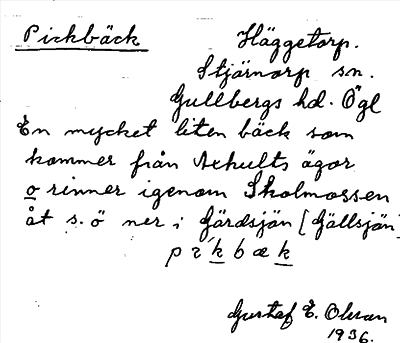 Pickbäck
Häggetorp.
Stjärnorp sn.
Gullbergs hd. Ögl
En mycket liten bäck som
kommer från Axhults ägor
o rinner igenom Skolmossen
åt s.ö ner i Gärdsjön [Gällsjön]
Gustaf E. Olsson
1936.